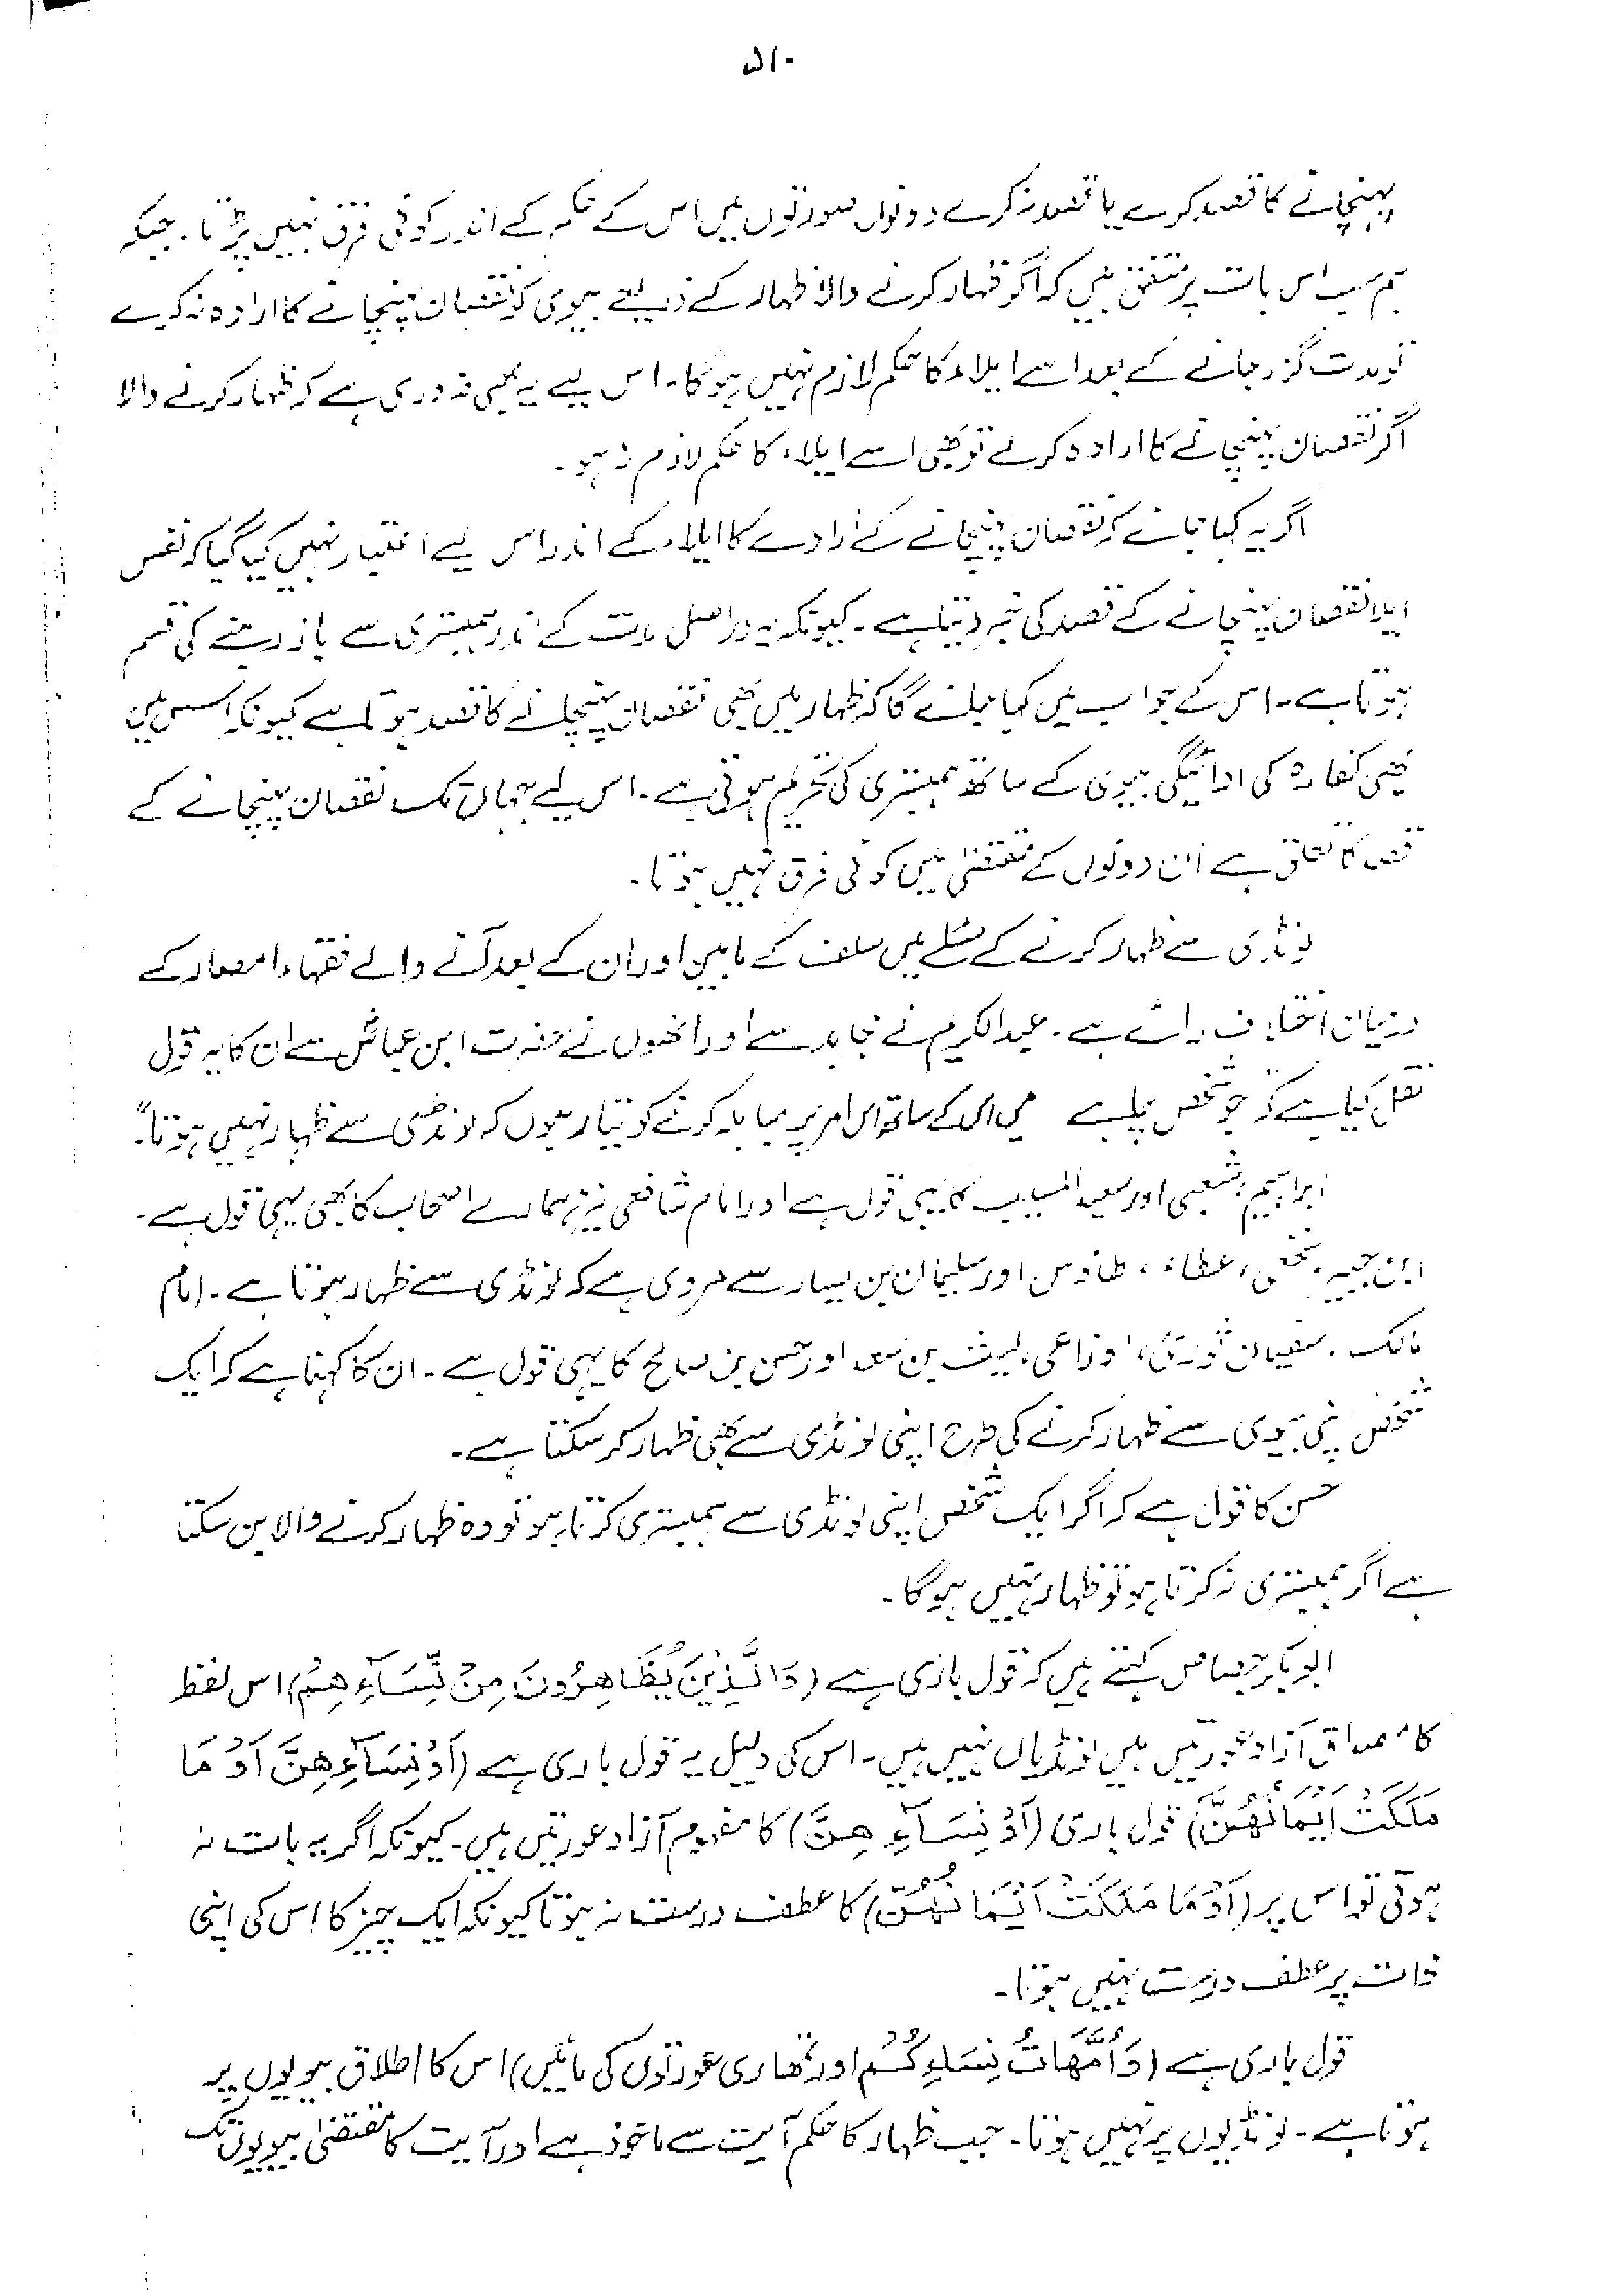 ۵۱۰
پہنچانے کا قصد کرے یا قصد نہ کرے دونوں صورتوں میں اس کے حکم کے اندر کوئی فرق نہیں پڑتا۔ جبکہ
ہم سب اس بات پر متفق ہیں کہ اگر ظہار کرنے والا ظہار کے ذریعے بیوی کو نقصان پہنچانے کا ارادہ نہ کرے
تو مدت گزر جانے کے بعد اسے ایلاء کا حکم لازم نہیں ہوگا۔ اس لیے یہ بھی ضروری ہے کہ ظہار کرنے والا
اگر نقصان پہنچانے کا ارادہ کرے تو بھی اسے ایلاء کا حکم لازم نہ ہو۔
اگر یہ کہا جائے کہ نقصان پہنچانے کے ارادے کا ایلاء کے اندر اس لیے اعتبار نہیں کیا گیا کہ نفس
ایلا نقصان پہنچانے کے قصد کی خبر دیتا ہے۔ کیونکہ یہ دراصل مدت کے اندر ہمبستری سے باز رہنے کی قسم
ہوتا ہے۔ اس کے جواب میں کہا جائے گا کہ ظہار میں بھی نقصان پہنچانے کا قصد ہوتا ہے کیونکہ اس میں
بھی کفارہ کی ادائیگی بیوی کے ساتھ ہمبستری کی تحریم ہوتی ہے۔ اس لیے جہاں تک نقصان پہنچانے کے
قصد کا تعلق ہے ان دونوں کے مقتضیٰ میں کوئی فرق نہیں ہوتا۔
لونڈی سے ظہار کرنے کے مسئلے میں سلف کے مابین اور ان کے بعد آنے والے فقہاء امصار کے
درمیان اختلاف رائے ہے۔ عبدالکریم نے مجاہد سے اور انھوں نے حضرت ابن عباسؓ سے ان کا یہ قول
نقل کیا ہے کہ "جو شخص چاہے میں اس کے ساتھ اس امر پر مباہلہ کرنے کو تیار ہوں کہ لونڈی سے ظہار نہیں ہوتا"۔
ابراہیم، شعبی اور سعید المسیب کا یہی قول ہے اور امام شافعی نیز ہمارے اصحاب کا بھی یہی قول ہے۔
ابن جبیر، نخعی، عطاء، طاؤس اور سلیمان بن یسار سے مروی ہے کہ لونڈی سے ظہار ہوتا ہے۔ امام
مالک، سفیان ثوری، اوزاعی، لیث بن سعد اور حسن بن صالح کا یہی قول ہے۔ ان کا کہنا ہے کہ ایک
شخص اپنی بیوی سے ظہار کرنے کی طرح اپنی لونڈی سے بھی ظہار کر سکتا ہے۔
حسن کا قول ہے کہ اگر ایک شخص اپنی لونڈی سے ہمبستری کرتا ہو تو وہ ظہار کرنے والا بن سکتا
ہے اگر ہمبستری نہ کرتا ہو تو ظہار نہیں ہوگا۔
ابوبکر جصاص کہتے ہیں کہ قول باری ہے (وَالَّذِيْنَ يُظَاهِرُوْنَ مِنْ نِّسَآءِهِمْ) اس لفظ
کا مصداق آزاد عورتیں ہیں لونڈیاں نہیں ہیں۔ اس کی دلیل یہ قول باری ہے (اَوْ نِسَآءِهِنَّ اَوْ مَا
مَلَكَتْ اَيْمَانُهُنَّ) قول باری (اَوْ نِسَآءِهِنَّ) کا مفہوم آزاد عورتیں ہیں۔ کیونکہ اگر یہ بات نہ
ہوتی تو اس پر (اَوْ مَا مَلَكَتْ اَيْمَانُهُنَّ) کا عطف درست نہ ہوتا کیونکہ ایک چیز کا اس کی اپنی
ذات پر عطف درست نہیں ہوتا۔
قول باری ہے (وَاُمَّهَاتُ نِسَاءِكُمْ اور تمھاری عورتوں کی مائیں) اس کا اطلاق بیویوں پر
ہوتا ہے۔ لونڈیوں پر نہیں ہوتا۔ جب ظہار کا حکم آیت سے ماخوذ ہے اور آیت کا مقتضیٰ بیویوں تک